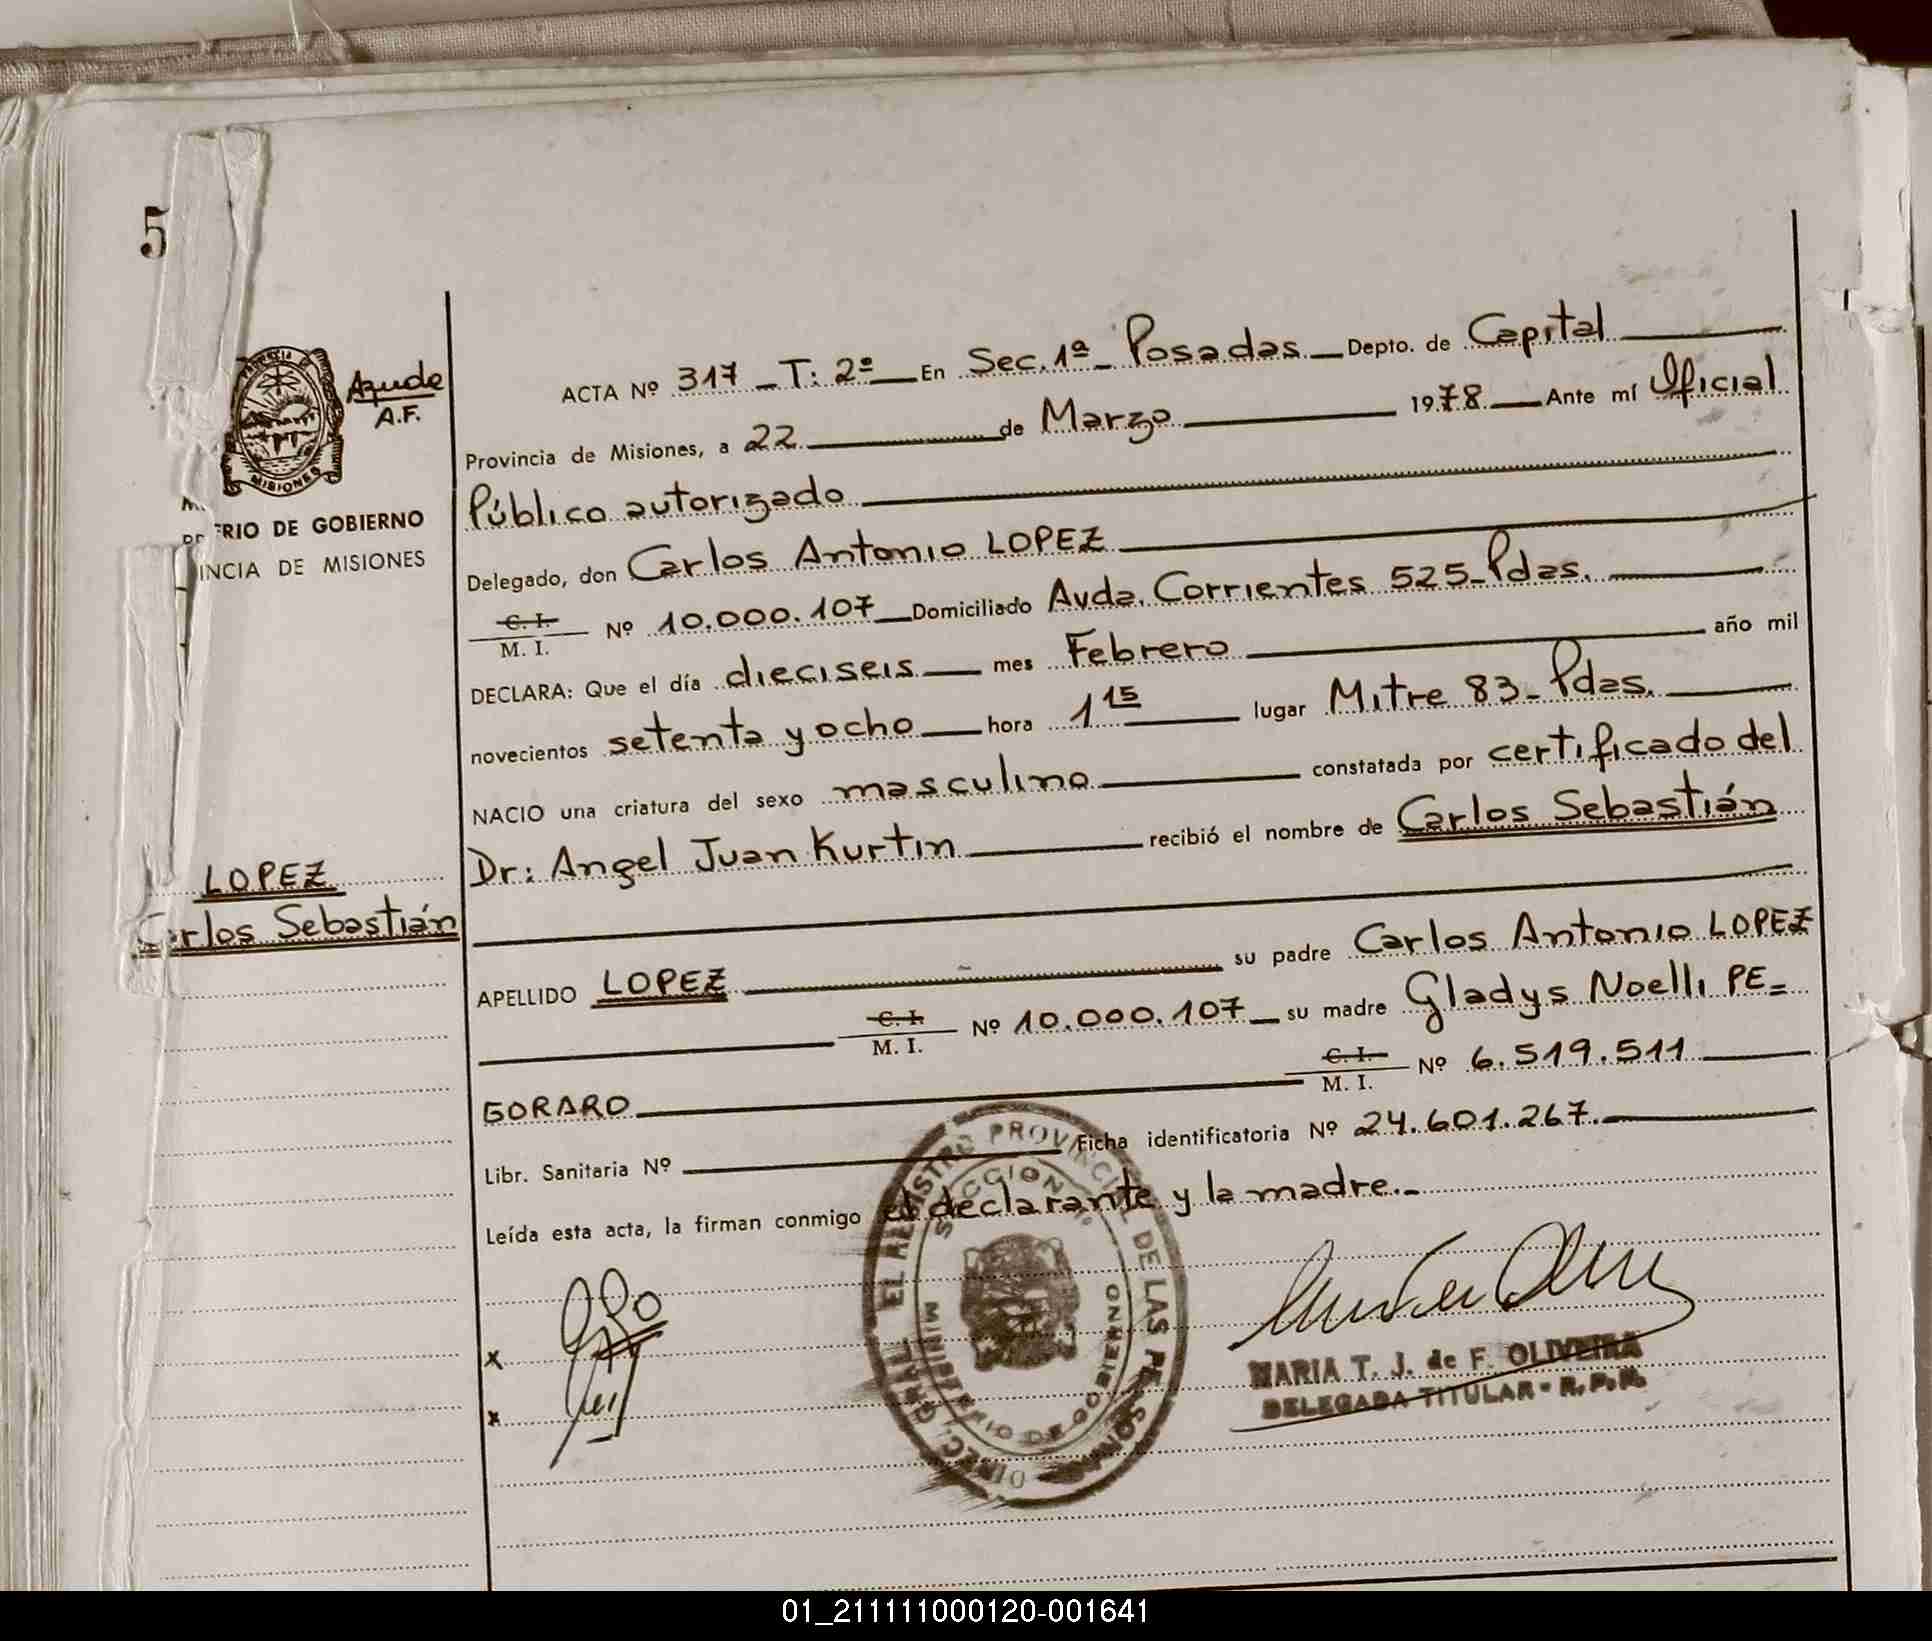 5
Azude
A.F.
MISIONES
ERIO DE GOBIERNO
INCIA DE MISIONES
ACTA Nº 317 - T: 2º En Sec. 1ª - Posadas Depto. de Capital
Provincia de Misiones, a 22 de Marzo 1978 Ante mí Oficial
Público autorizado
Delegado, don Carlos Antonio LOPEZ
C. I.
M. I. Nº 10.000.107 Domiciliado Avda. Corrientes 525 - Pdas.
DECLARA: Que el día dieciseis mes Febrero año mil
novecientos setenta y ocho hora 1 15 lugar Mitre 83 - Pdas.
NACIO una criatura del sexo masculino constatada por certificado del
Dr: Angel Juan Kurtin recibió el nombre de Carlos Sebastián
LOPEZ
Carlos Sebastián
APELLIDO LOPEZ su padre Carlos Antonio LOPEZ
C. I.
M. I. Nº 10.000.107 su madre Gladys Noelli PE=
GORARO C. I.
M. I. Nº 6.519.511
Libr. Sanitaria Nº Ficha identificatoria Nº 24.601.267.
Leída esta acta, la firman conmigo el declarante y la madre.-
DIREC. GRAL. EL REGISTRO PROVINCIAL DE LAS PERSONAS
SECCION 1º
MINISTERIO DE GOBIERNO
x
x
MARIA T. J. de F. OLIVEIRA
DELEGADA TITULAR - R. P. P.
01_211111000120-001641